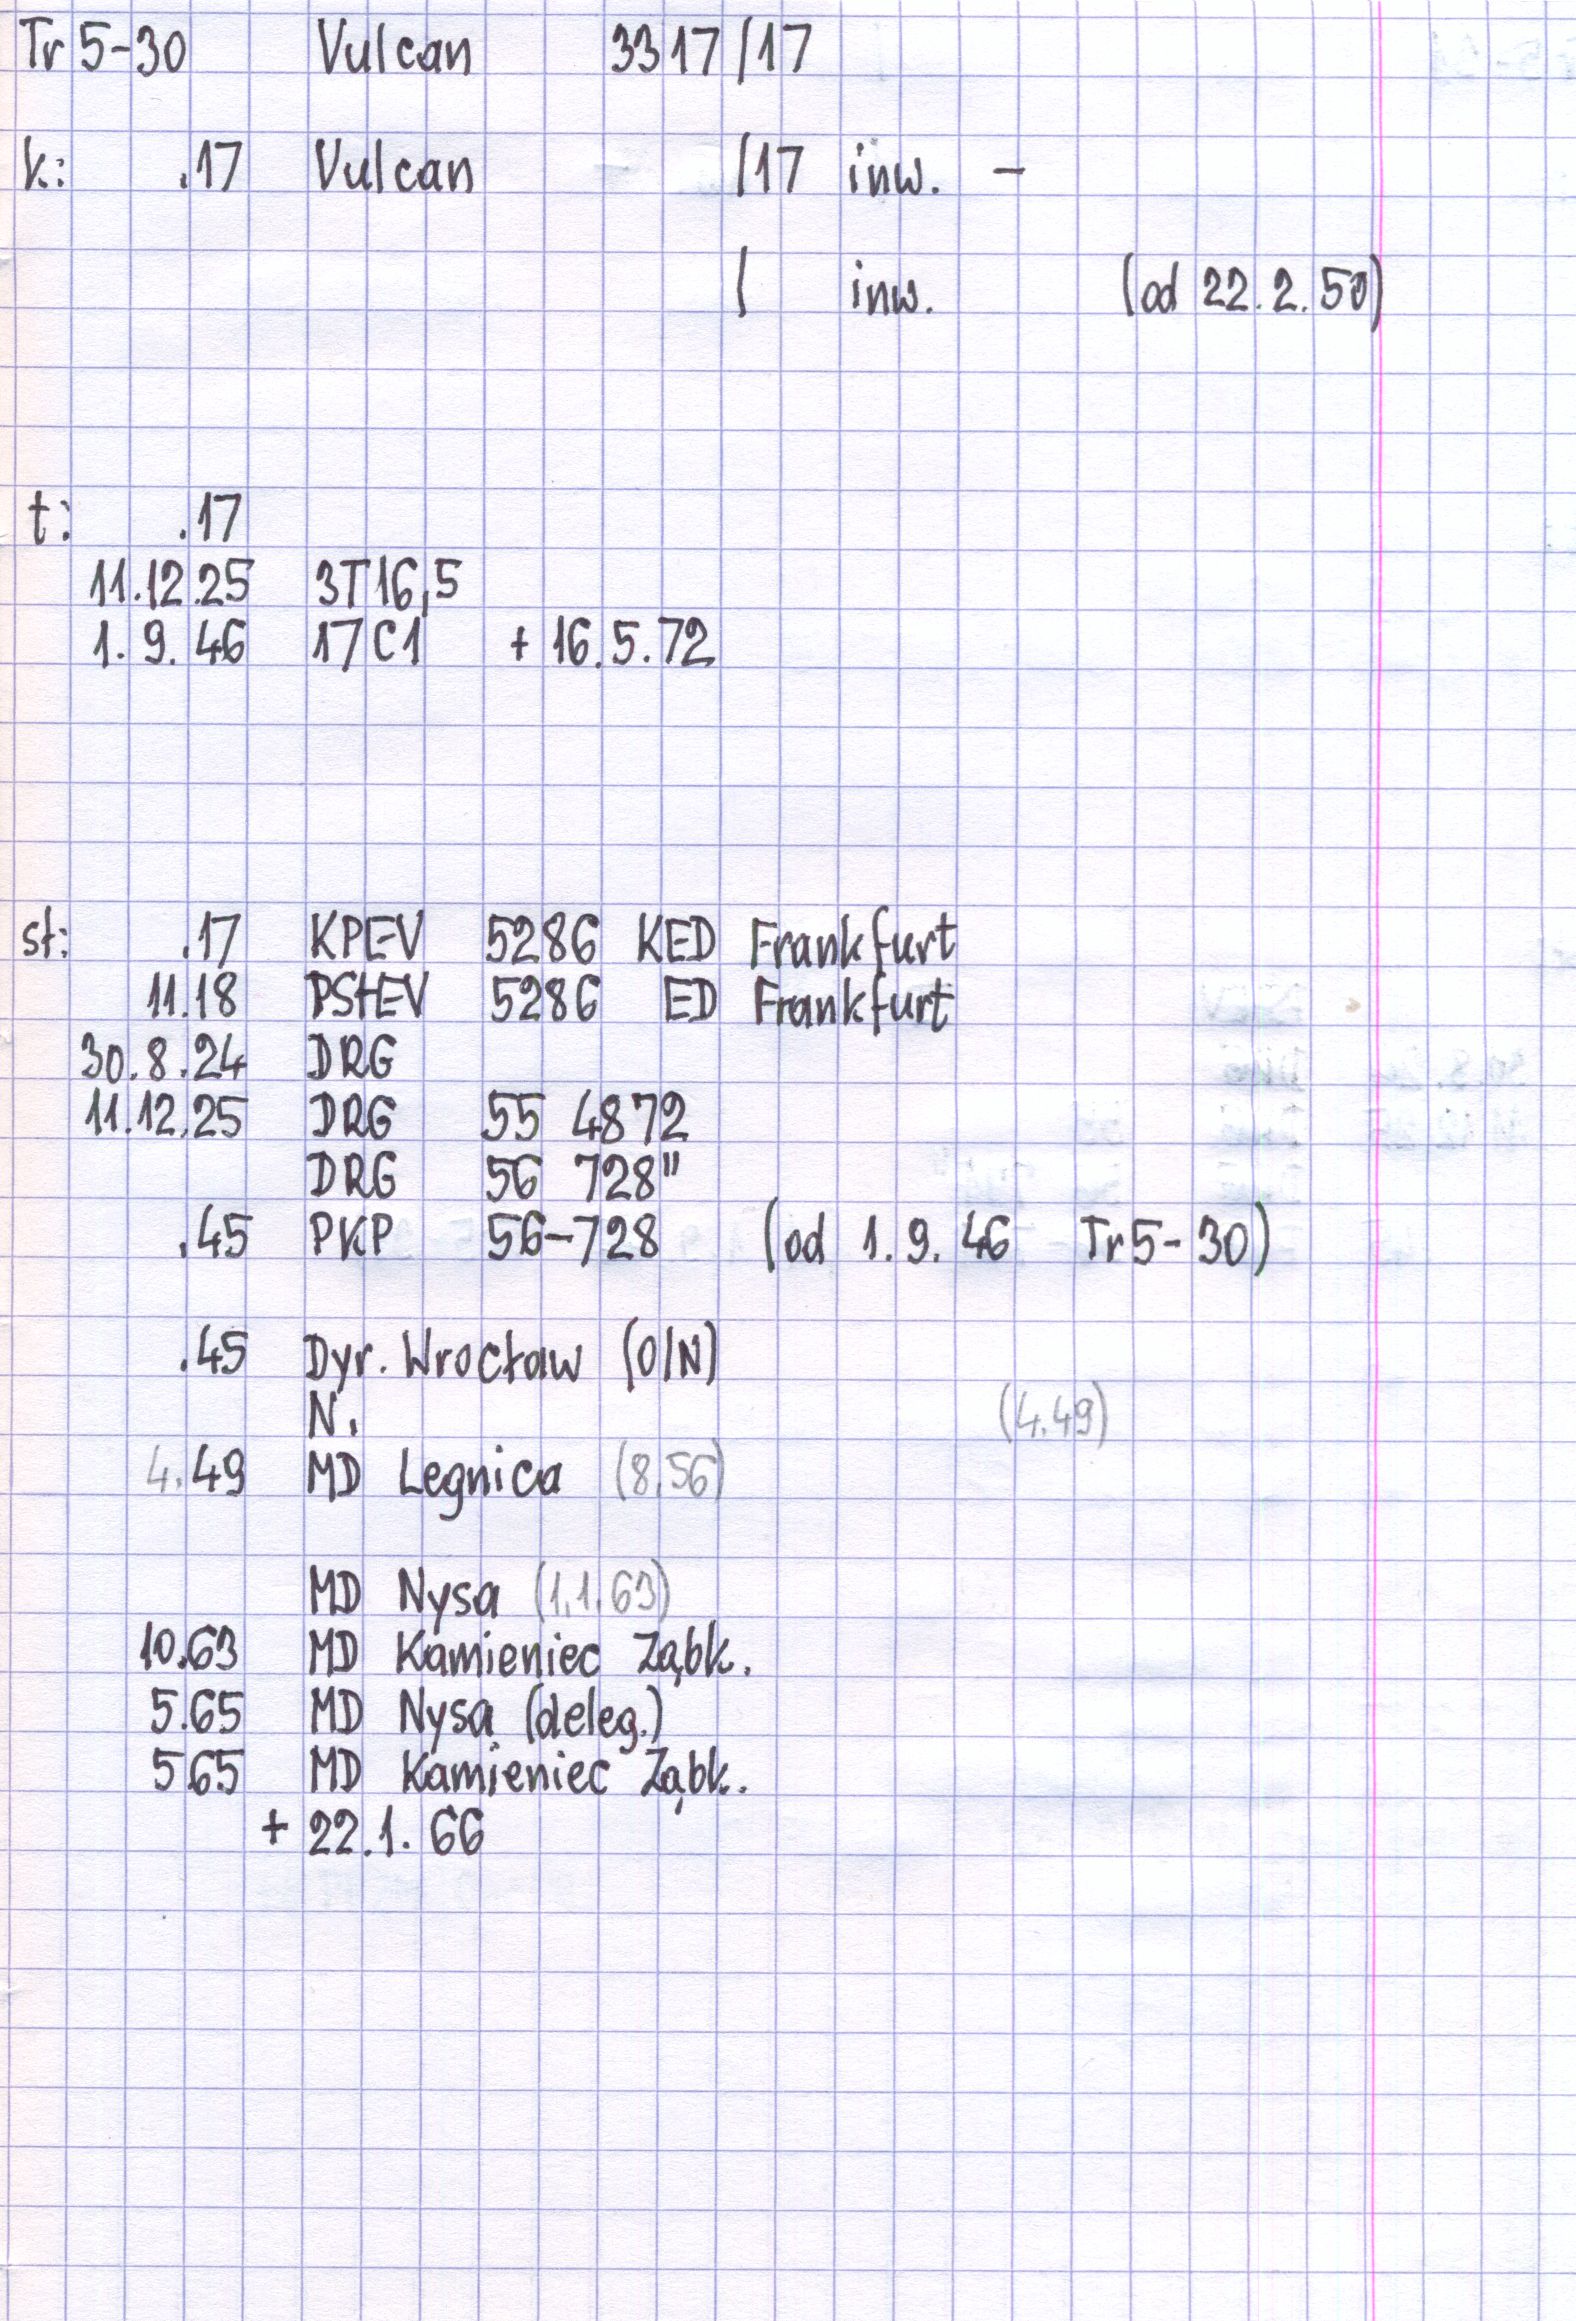 Tr 5-30 Vulcan 3317/17
k: .17 Vulcan /17 inw. -
/ inw. (od 22.2.50)
t: .17
11.12.25 3T16,5
1.9.46 17C1 + 16.5.72
st: .17 KPEV 5286 KED Frankfurt
11.18 PStEV 5286 ED Frankfurt
30.8.24 DRG
11.12.25 DRG 55 4872
DRG 56 728"
.45 PKP 56-728 (od 1.9.46 Tr5-30)
.45 Dyr. Wrocław (O/N)
N. (4.49)
4.49 MD Legnica (8.56)
MD Nysa (1.1.63)
10.63 MD Kamieniec Ząbk.
5.65 MD Nysa (deleg.)
5.65 MD Kamieniec Ząbk.
+ 22.1.66